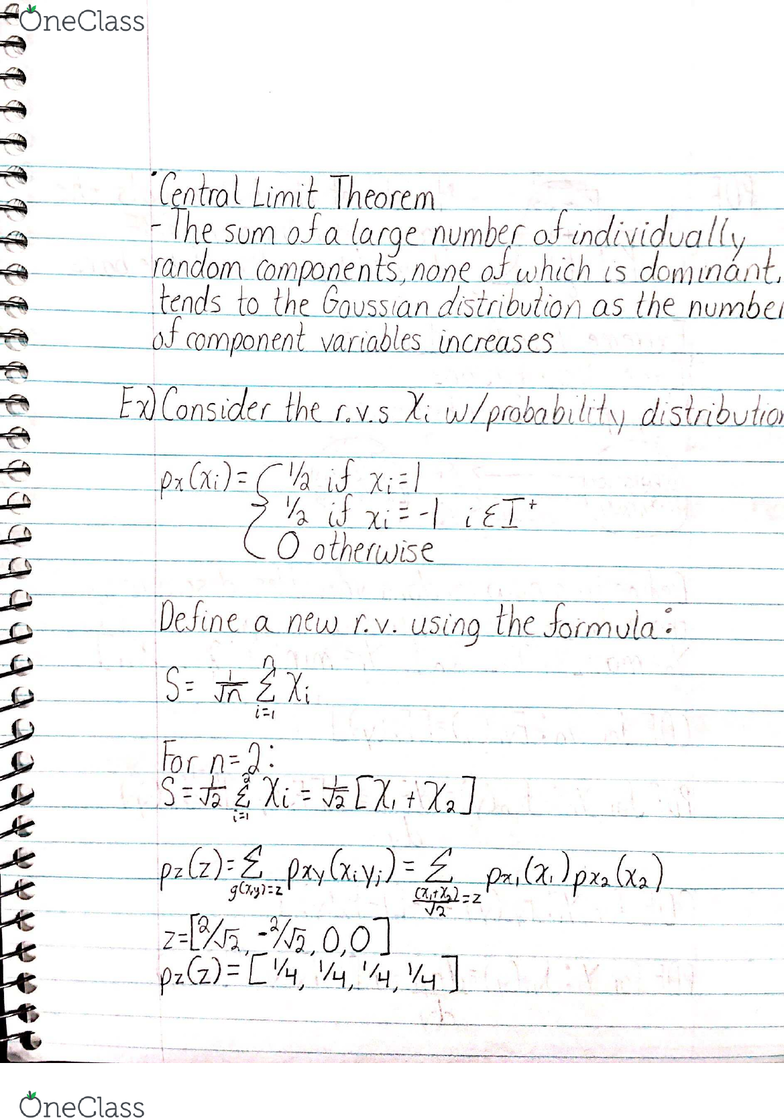 OneClass
·Central Limit Theorem
- The sum of a large number of individually
random components, none of which is dominant,
tends to the Gaussian distribution as the number
of component variables increases
Ex) Consider the r.v.s Xi w/probability distribution
px(xi) = { 1/2 if xi = 1
1/2 if xi = -1 i ∈ I⁺
0 otherwise
Define a new r.v. using the formula:
S = 1/√n Σ_{i=1}^{n} Xi
For n=2:
S = 1/√2 Σ_{i=1}^{2} Xi = 1/√2 [X₁ + X₂]
pz(z) = Σ_{g(x,y)=z} pxy(xi yj) = Σ_{(x₁+x₂)/√2=z} px₁(x₁) px₂(x₂)
z = [2/√2, -2/√2, 0, 0]
pz(z) = [1/4, 1/4, 1/4, 1/4]
OneClass